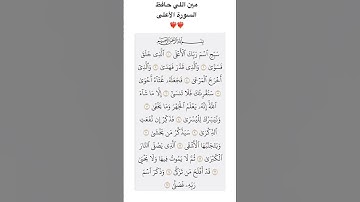 مين اللي حافظ
السورة الأعلى
❤️❤️
بِسْمِ اللَّهِ الرَّحْمَٰنِ الرَّحِيمِ
سَبِّحِ ٱسْمَ رَبِّكَ ٱلْأَعْلَى ۝ ٱلَّذِى خَلَقَ
فَسَوَّىٰ ۝ وَٱلَّذِى قَدَّرَ فَهَدَىٰ ۝ وَٱلَّذِىٓ
أَخْرَجَ ٱلْمَرْعَىٰ ۝ فَجَعَلَهُۥ غُثَآءً أَحْوَىٰ
۝ سَنُقْرِئُكَ فَلَا تَنسَىٰٓ ۝ إِلَّا مَا شَآءَ
ٱللَّهُ إِنَّهُۥ يَعْلَمُ ٱلْجَهْرَ وَمَا يَخْفَىٰ ۝
وَنُيَسِّرُكَ لِلْيُسْرَىٰ ۝ فَذَكِّرْ إِن نَّفَعَتِ
ٱلذِّكْرَىٰ ۝ سَيَذَّكَّرُ مَن يَخْشَىٰ ۝
وَيَتَجَنَّبُهَا ٱلْأَشْقَى ۝ ٱلَّذِى يَصْلَى ٱلنَّارَ
ٱلْكُبْرَىٰ ۝ ثُمَّ لَا يَمُوتُ فِيهَا وَلَا يَحْيَىٰ
۝ قَدْ أَفْلَحَ مَن تَزَكَّىٰ ۝ وَذَكَرَ ٱسْمَ
رَبِّهِۦ فَصَلَّىٰ ۝